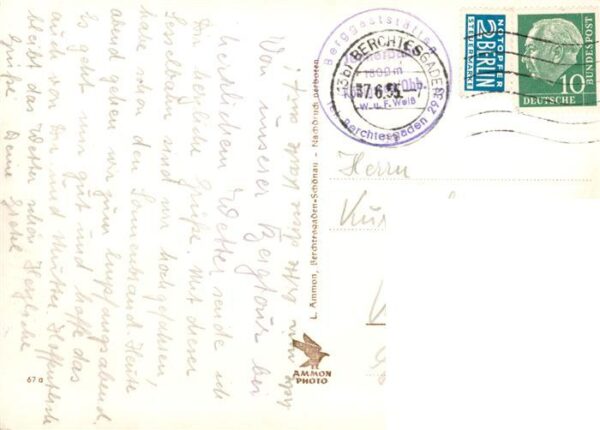 Von unserer Bergtour bei
herrlichem Wetter sende ich
Dir herzliche Grüße. Mit dieser
Sesselbahn sind wir hochgefahren,
den Sonnenbrand. Heute
aben wir zum Empfangsabend.
Es geht uns gut und hoffe das
auch Dir und Mutter. Hoffentlich
bleibt das Wetter schön. Herzliche
Grüße Deine
L. Ammon, Berchtesgaden-Schönau - Nachdruck verboten
AMMON
PHOTO
67a
Berggaststätten
1800 m
W. u. F. Weiß
Berchtesgaden 2933
(13b) BERCHTESGADEN
6.55.-7
NOTOPFER
2 BERLIN
STEUERMARKE
DEUTSCHE
BUNDESPOST
10
Herrn